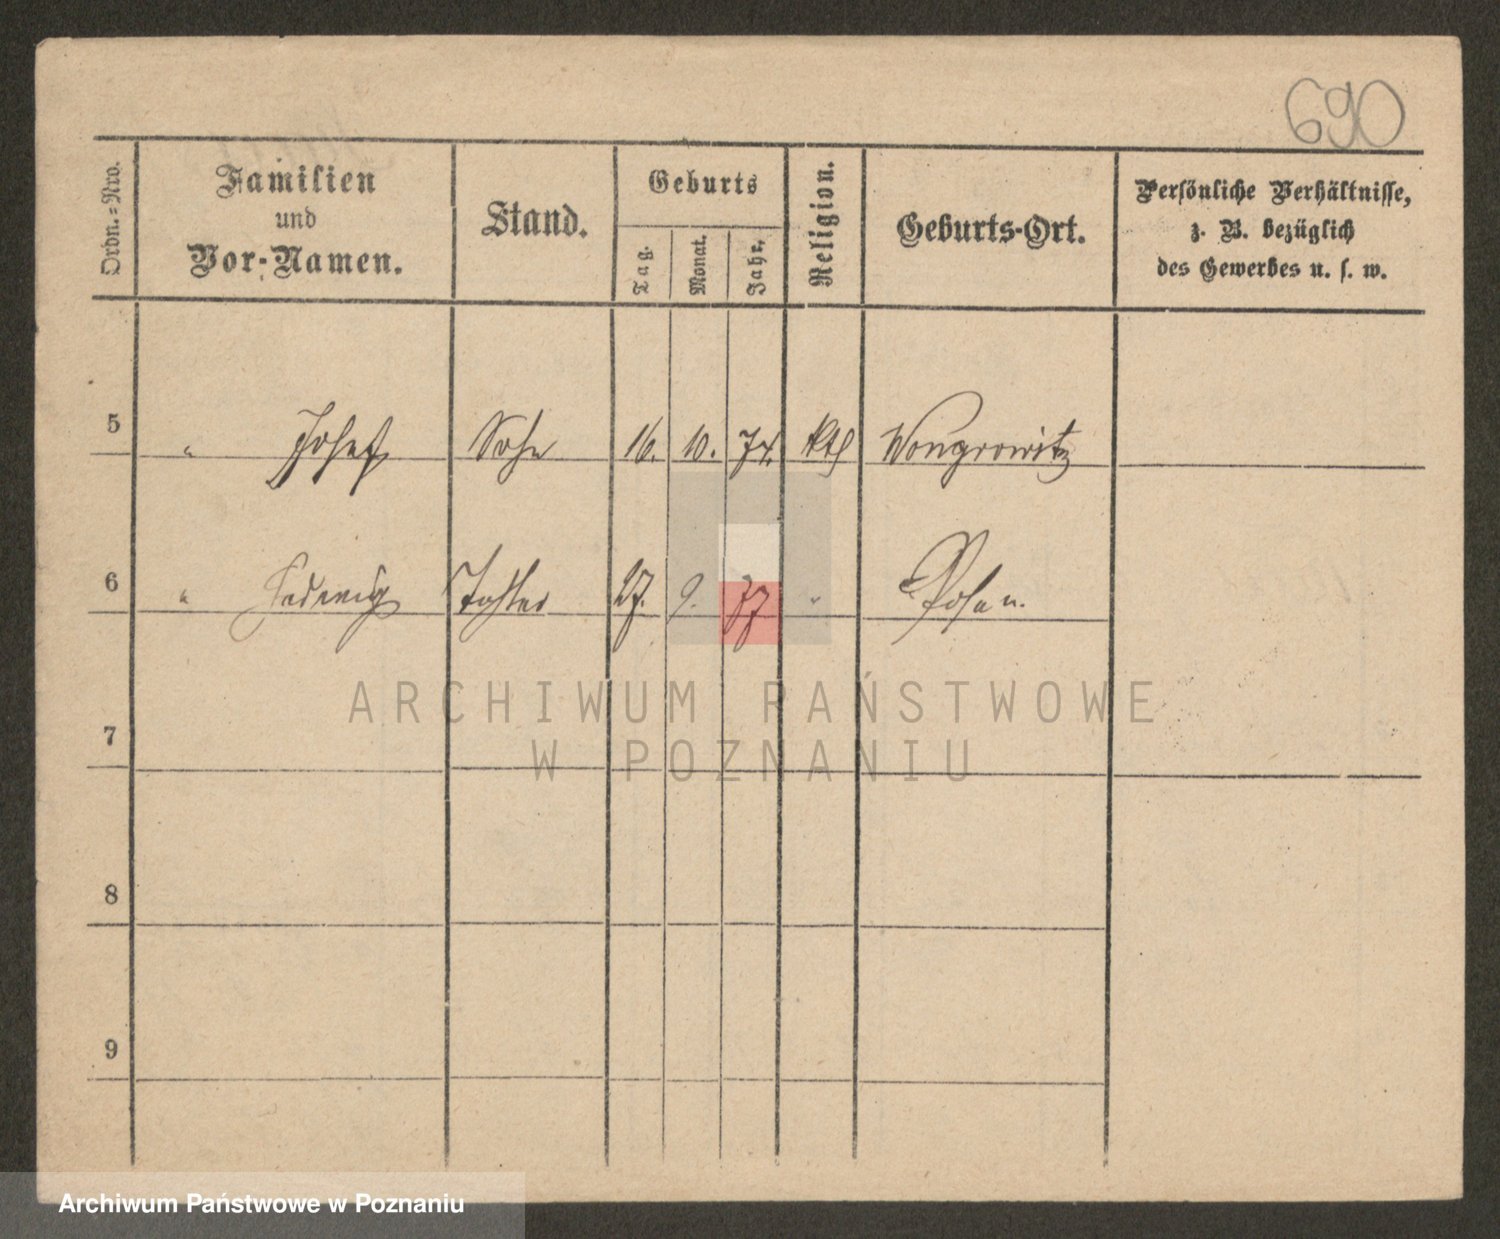 690
Ordn.=Nro.
Familien
und
Vor-Namen.
Stand.
Geburts
Tag.
Monat.
Jahr.
Religion.
Geburts-Ort.
Persönliche Verhältnisse,
z. B. bezüglich
des Gewerbes u. s. w.
5 " Josef Sohn 16. 10. 74. kth Wongrowitz
6 " Hedwig Tochter 27. 9. 77 " Posen.
ARCHIWUM PAŃSTWOWE
7
W POZNANIU
8
9
Archiwum Państwowe w Poznaniu